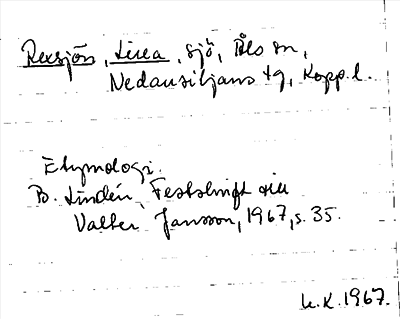 Rexsjön, Lixa, sjö, Åls sn,
Nedansiljans tg, Kopp. l.
Etymologi.
B. Lindén, Festskrift till
Valter Jansson, 1967, s. 35.
L.K. 1967.